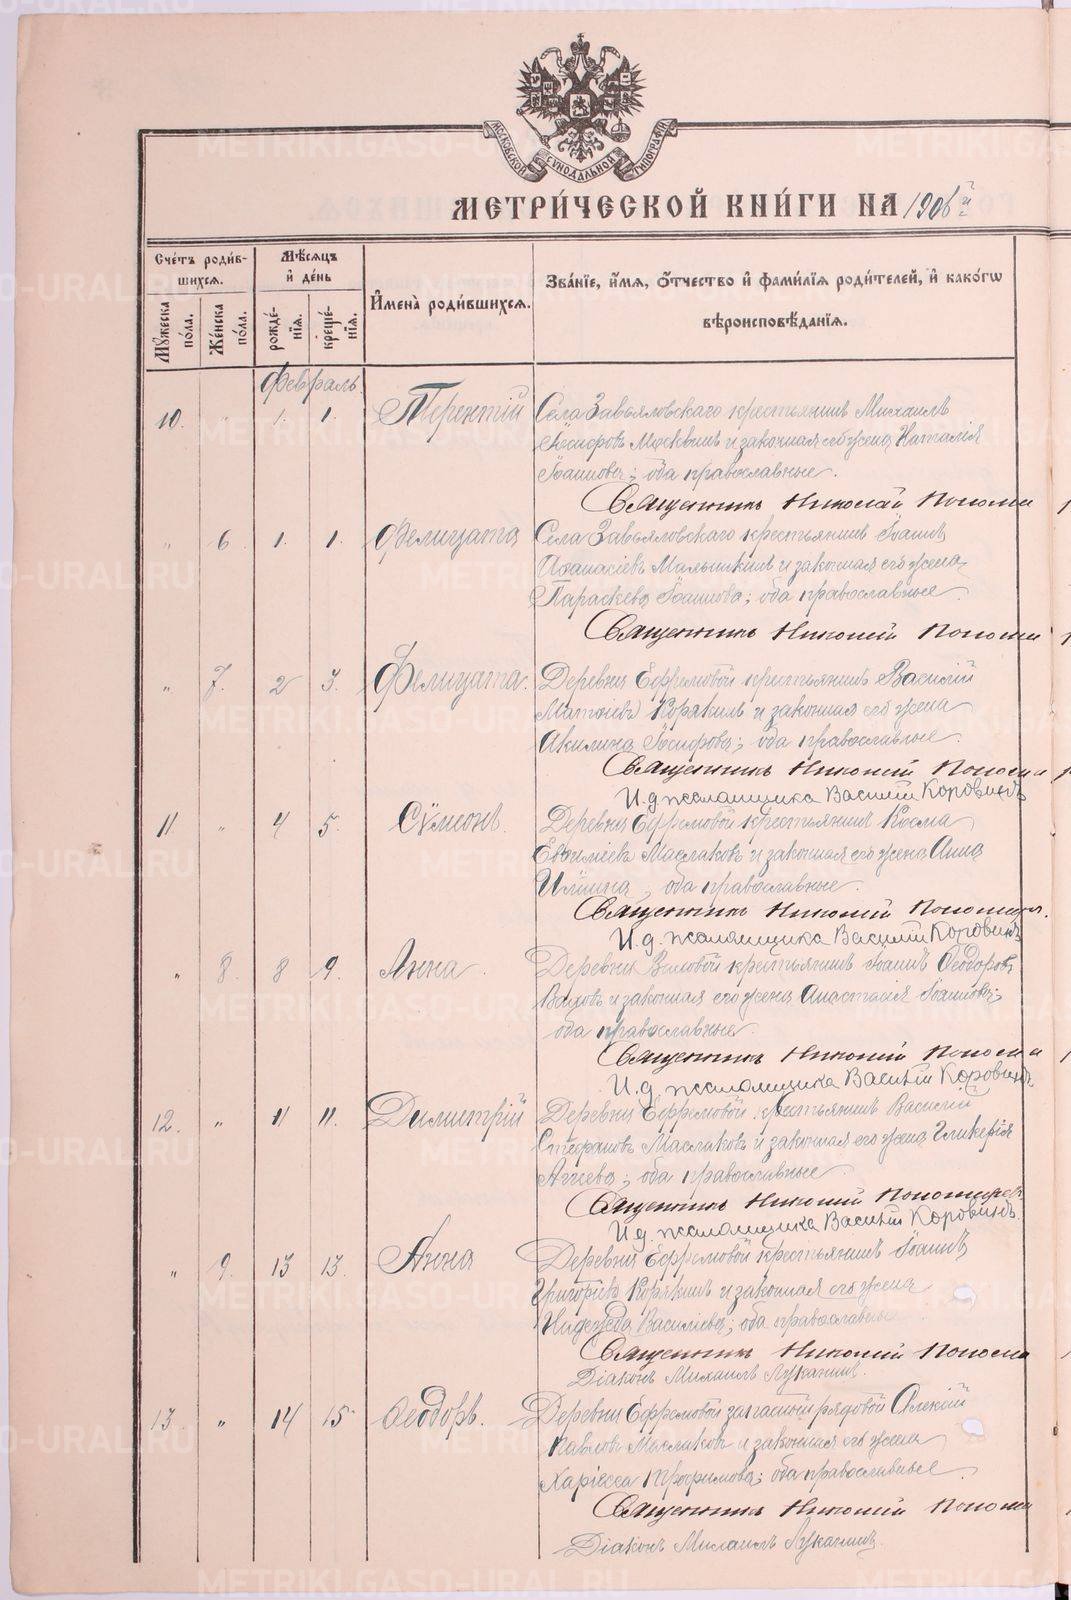 МОСКОВСКОЙ СѴНОДАЛЬНОЙ ТИПОГРАФІИ
МЕТРИ́ЧЕСКОЙ КНИ́ГИ НА 1906 й
Сче́тъ роди́вшихсѧ.
Мѣ́сѧцъ и҆ де́нь
И҆мена̀ роди́вшихсѧ.
Зва́нїе, и҆́мѧ, ѻ҆́тчество и҆ фами́лїѧ роди́телей, и҆ како́гѡ
вѣроисповѣ́данїѧ.
Мꙋ́жеска по́ла.
Же́нска по́ла.
рожде́нїѧ.
креще́нїѧ.
Февраль.
10. " 1. 1. Терентій Села Завьяловскаго крестьянинъ Михаилъ
Іосифовъ Москвинъ и законная его жена Наталія
Іоаннова; оба православные.
Священникъ Николай Попома
" 6. 1. 1. Фелицата Села Завьяловскаго крестьянинъ Іоаннъ
Аѳанасіевъ Мальцинъ и законная его жена
Параскева Іоаннова; оба православные.
Священникъ Николай Попома
" 7. 2 3. Фелицата. Деревни Ефремовой крестьянинъ Василій
Коряжинъ и законная его жена
Акилина Іосифова; оба православные.
Священникъ Николай Попома
И.д. псаломщика Василій Коровинъ
11 " 4 5. Сѵмеонъ. Деревни Ефремовой крестьянинъ Косма
Евѳиміевъ Маслаковъ и законная его жена Анна
Иліина, оба православные.
Священникъ Николай
И.д. псаломщика Василій Коровинъ
" 8. 8 9. Анна. Деревни Виловой крестьянинъ Іоаннъ Ѳеодоровъ
и законная его жена Анастасія Іоаннова;
оба православные.
Священникъ Николай Попома
И.д. псаломщика Василій Коровинъ
12. " 11 11. Димитрій Деревни Ефремовой крестьянинъ Василій
Стефановъ Маслаковъ и законная его жена Гликерія
Аггеева; оба православные.
Священникъ Николай
И.д. псаломщика Василій Коровинъ.
" 9. 13 13. Анна Деревни Ефремовой крестьянинъ Іоаннъ
Григоріевъ Коряжинъ и законная его жена
Надежда Василіева; оба православные
Священникъ Николай Попома
Діаконъ Михаилъ Луканинъ.
13. " 14 15. Ѳеодоръ. Деревни Ефремовой запасный рядовой Алексій
Павловъ Маслаковъ и законная его жена
Хариесса Трофимова; оба православные.
Священникъ Николай Попома
Діаконъ Михаилъ Луканинъ.
METRIKI.GASO-URAL.RU